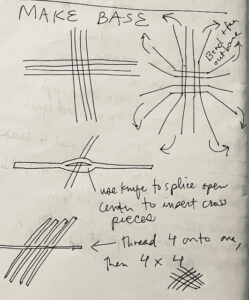 MAKE BASE
Bend + fan
out base
use knife to splice open
center to insert cross
pieces
← thread 4 onto one,
then 4 x 4